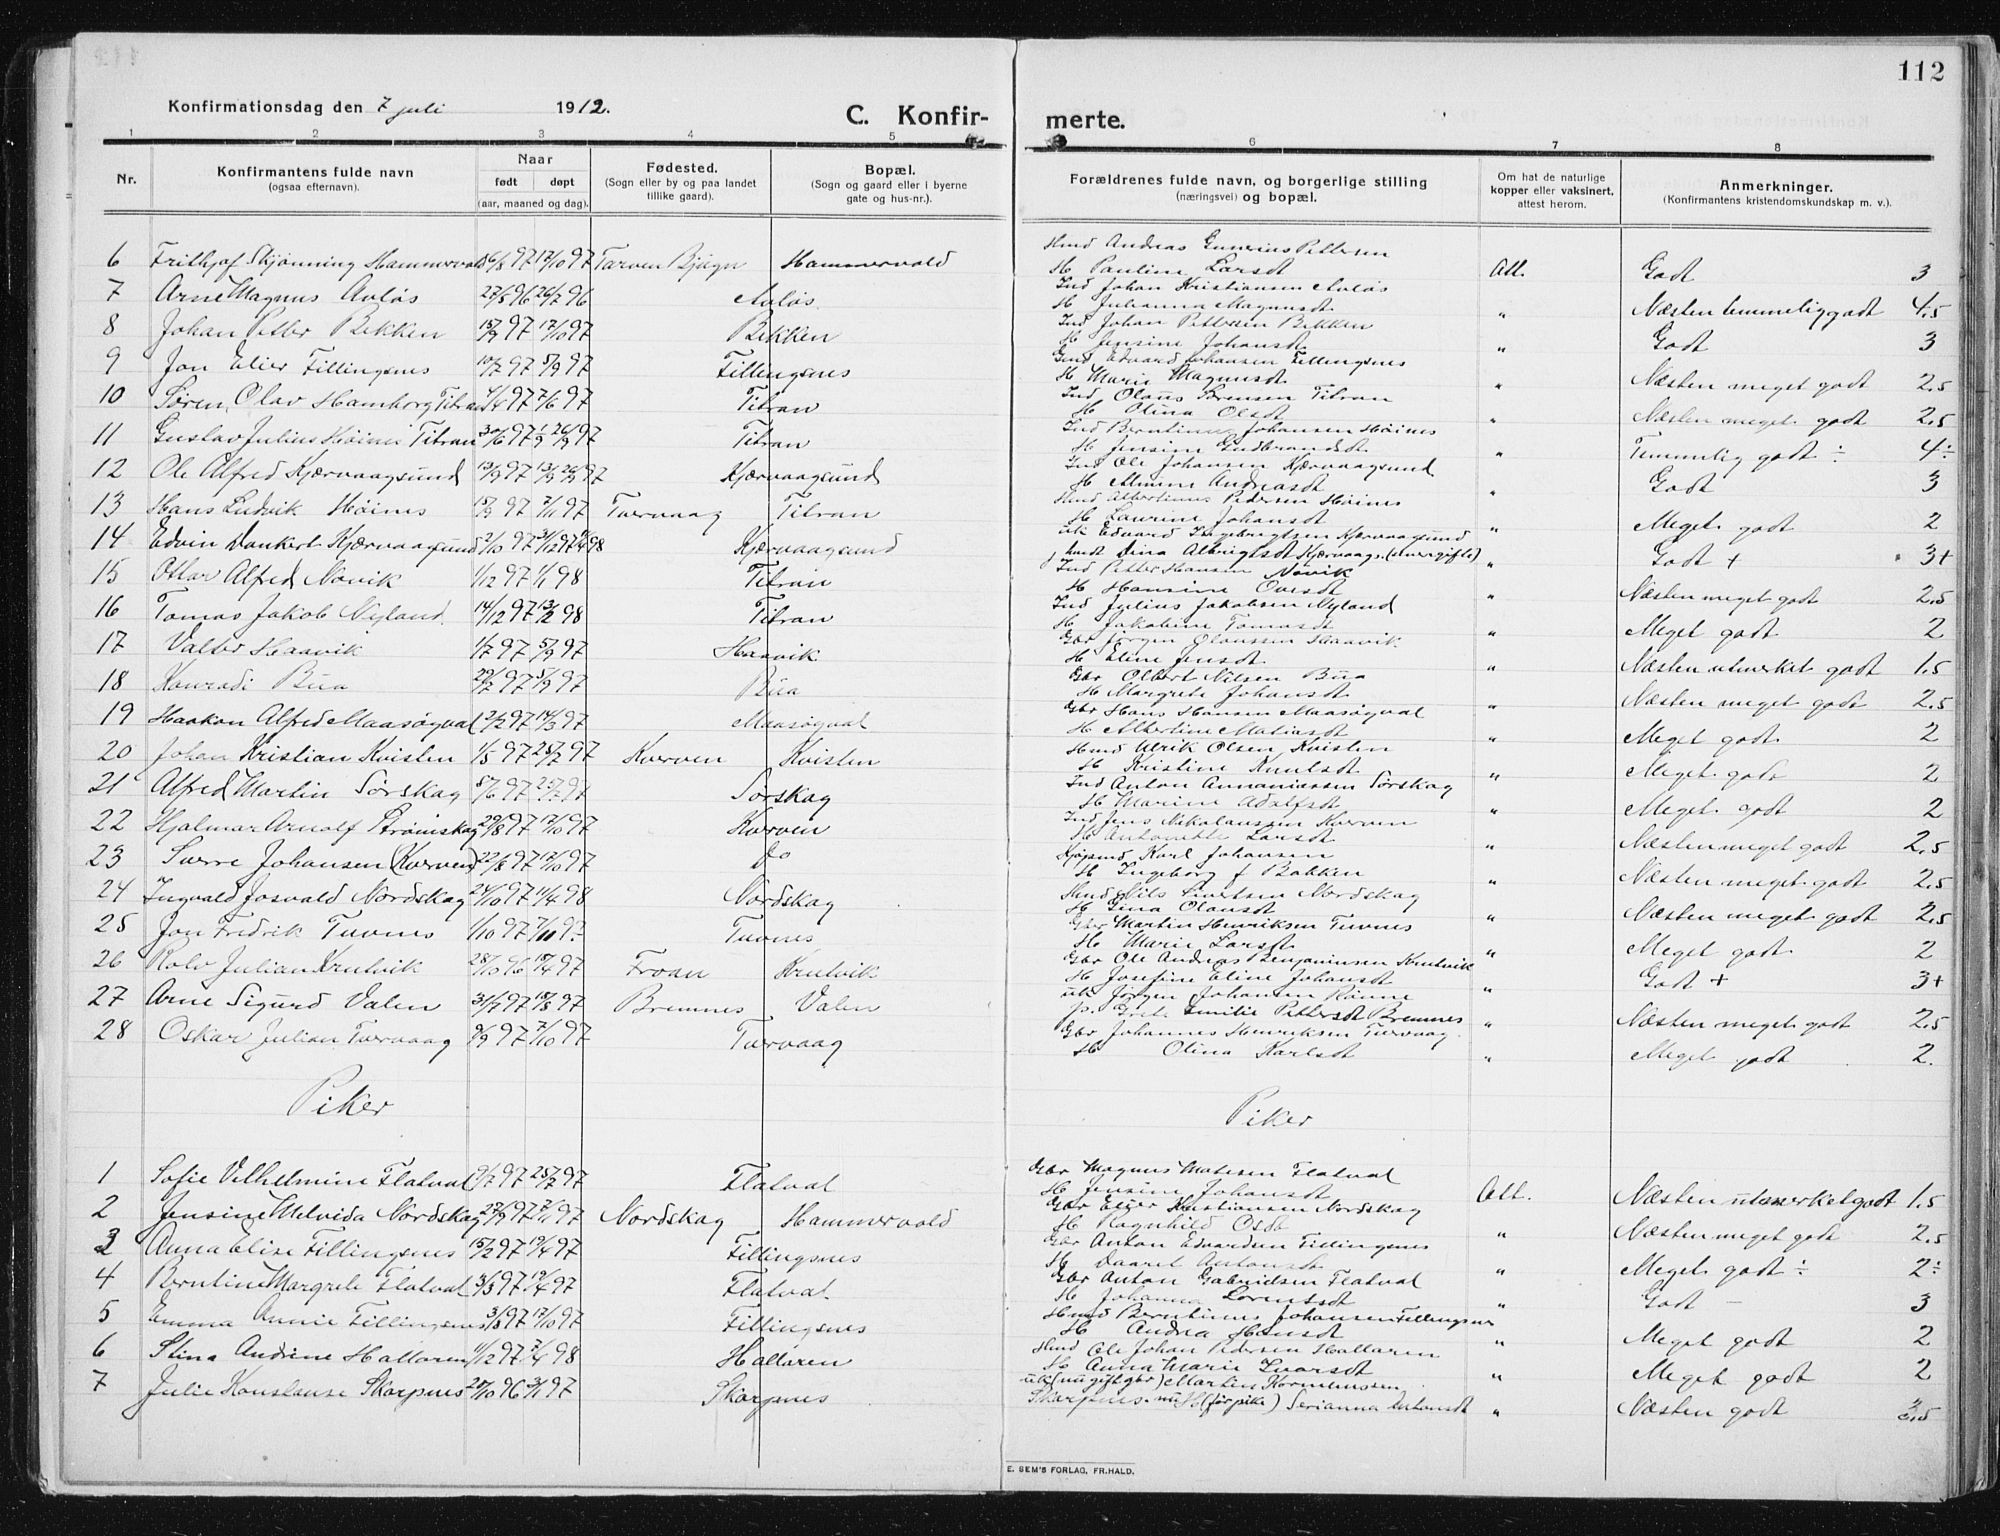 112
Konfirmationsdag den 7 juli 1912.
C. Konfir-
merte.
1 2 3 4 5 6 7 8
Nr.
Konfirmantens fulde navn
(ogsaa efternavn).
Naar
født døpt
(aar, maaned og dag).
Fødested.
(Sogn eller by og paa landet
tillike gaard).
Bopæl.
(Sogn og gaard eller i byerne
gate og hus-nr.).
Forældrenes fulde navn, og borgerlige stilling
(næringsvei) og bopæl.
Om hat de naturlige
kopper eller vaksinert,
attest herom.
Anmerkninger.
(Konfirmantens kristendomskundskap m. v.).
6 Frithjof Skjønning Hammervold 97 17/10 97 Tarven Bjugn Hammervold
Hmd Andreas Gunerius Pettersen
H Pauline Larsdt Att. Godt 3
7 Arne Magnus Auløs 27/5 96 26/7 96 Auløs
Ind Johan Kristiansen Auløs
H Julianna Magnusdt " Næsten temmelig godt 4,5
8 Johan Petter Bekken 15/9 97 17/10 97 Bekken
Ind Johan Pettersen Bekken
H Jensine Johansdt " Godt 3
9 Jon Elier Fillingsnes 10/7 97 5/9 97 Fillingsnes
Gmd Edvard Johansen Fillingsnes
H Marie Magnusdt " Næsten meget godt 2,5
10 Søren Olav Hamborg Titran 4/4 97 7/6 97 Titran
Ind Olaus Sørensen Titran
H Olina Olsdt " Næsten meget godt 2,5
11 Gustav Julius Høines Titran 30/6 97 97 Titran
Ind Berntinus Johansen Høines
H Jensine Gudbrandsdt " Temmelig godt ÷ 4÷
12 Ole Alfred Kjærvaagsund 97 97 Kjærvaagsund
Ind Ole Johansen Kjærvaagsund
H Almine Andreasdt " Godt 3
13 Hans Ludvik Høines 15/9 97 7/11 97 Tuervaag Titran
Hmd Albertinus Pedersen Høines
H Laurine Johansdt " Meget godt 2
14 Edvin Dankert Kjærvaagsund 2/10 97 98 Kjærvaagsund
uk Edvard Ingebrigtsen Kjærvaagsund
Dina Albrigtsdt Kjærvaags. " Godt + 3+
15 Ottar Alfred Nøvik 1/12 97 1/1 98 Titran
Ind Petter Hansen Nøvik
H Hansine Ovesdt " Næsten meget godt 2,5
16 Tomas Jakob Nyland 14/12 97 13/2 98 Titran
Ind Julius Jakobsen Nyland
H Jakobine Tomasdt " Meget godt 2
17 Valter Haavik 1/7 97 5/9 97 Haavik
Gbr Jørgen Olaussen Haavik
H Eline Jensdt " Næsten utmerket godt 1,5
18 Konradi Bua 97 5/9 97 Bua
Gbr Olbert Nilsen Bua
H Margrete Johansdt " Næsten meget godt 2,5
19 Haakon Alfred Maasøgval 97 14/3 97 Maasøgval
Gbr Hans Hansen Maasøgval
H Albertine Matiasdt " Meget godt 2
20 Johan Kristian Kvisten 1/5 97 25/7 97 Kverven Kvisten
Hmd Ulrik Olsen Kvisten
H Kristine Knutsdt " Meget godt 2
21 Alfred Martin Sørskag 8/6 97 25/7 97 Sørskag
Ind Anton Annaniassen Sørskag
H Marine Adolfsdt " Meget godt 2
22 Hjalmar Arnolf Strømskag 29/8 97 17/10 97 Kverven
Ind Jens Nikolaussen Kverven
H Antonette Larsdt " Næsten meget godt 2,5
23 Sverre Johansen (Kverven) 22/8 97 17/10 97 Do
Kjøpmd Karl Johansen
H Ingeborg f Bakken " Næsten meget godt 2,5
24 Ingvald Josvald Nordskag 24/10 97 11/4 98 Nordskag
Hmd Nils Sivertsen Nordskag
H Gina Olausdt " Næsten meget godt 2,5
25 Jon Fredrik Tuvnes 1/10 97 7/11 97 Tuvnes
Gbr Martin Henriksen Tuvnes
H Marie Larsdt " Meget godt 2
26 Rolv Julian Krutvik 28/10 96 18/4 97 Froan Krutvik
Gbr Ole Andreas Benjaminsen Krutvik
H Josefine Eline Johansdt " Godt + 3+
27 Arne Sigurd Valen 31/7 97 15/8 97 Bremnes Valen
uk Jørgen Johansen Rønne
p. Grete Emilie Pettersdt Bremnes " Næsten meget godt 2,5
28 Oskar Julian Tuervaag 9/9 97 7/10 97 Tuervaag
Gbr Johannes Henriksen Tuervaag.
H Olina Karlsdt " Meget godt 2.
Piker
Piker
1 Sofie Vilhelmine Flatval 9/7 97 25/7 97 Flatval
Gbr Magnus Matesen Flatval
H Jensine Johansdt Att. Næsten utmerket godt 1,5
2 Jensine Melvida Nordskag 27/9 97 7/11 97 Nordskag Hammervold
Gbr Elier Kristiansen Nordskag
H Ragnhild Osdt " Næsten meget godt 2,5
3 Anna Elise Fillingsnes 15/2 97 19/4 97 Fillingsnes
Gbr Anton Edvardsen Fillingsnes
H Daaret Antonsdt " Meget godt ÷ 2÷
4 Berntine Margrete Flatval 3/3 97 19/4 97 Flatval
Gbr Anton Gabrielsen Flatval
H Johanna Lorentsdt " Godt – 3
5 Emma Annie Fillingsnes 3/8 97 17/10 97 Fillingsnes
Hmd Berntinus Johansen Fillingsnes
H Andrea Hansdt " Meget godt 2
6 Stina Andrine Hallaren 1/12 97 98 Hallaren
Hmd Ole Johan Pedersen Hallaren
H Anna Marie Ivarsdt " Meget godt 2
7 Julie Konstanse Skarpnes 20/10 96 3/1 97 Skarpnes
uk (nu gift gbr) Martin Korneliussen
Skarpnes. nu H (før pike) Serianna Antonsdt " Næsten godt 3,5
E. SEM'S FORLAG, FR.HALD.